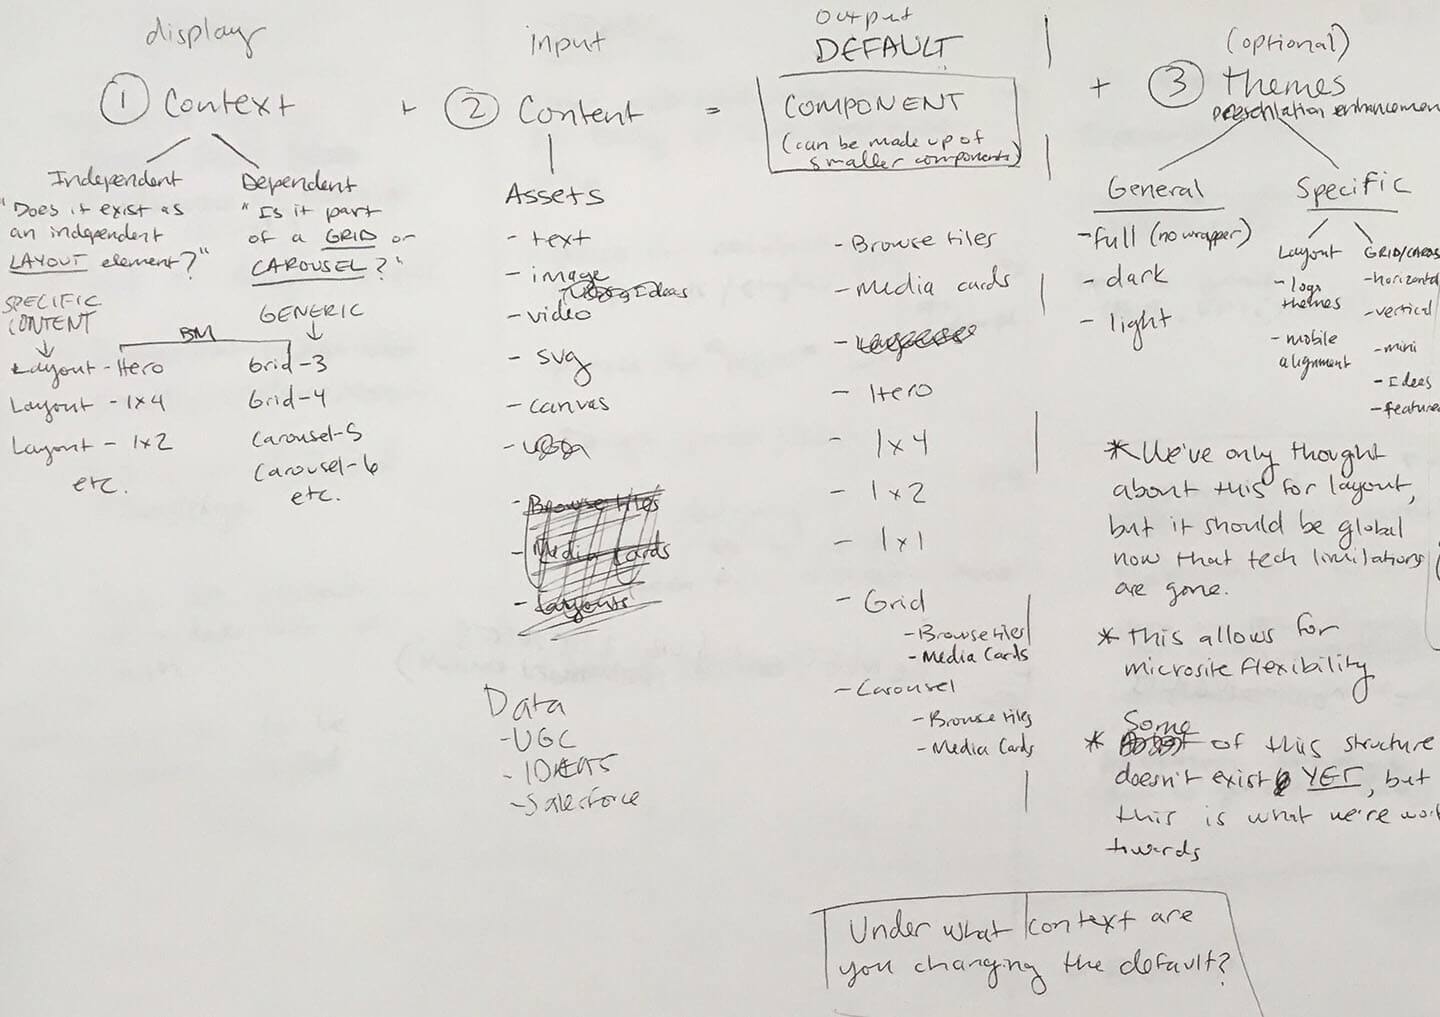 display
① Context
Independent
"Does it exist as
an independent
LAYOUT element?"
SPECIFIC
CONTENT
Layout - Hero
Layout - 1x4
Layout - 1x2
etc.
Dependent
"Is it part
of a GRID or
CAROUSEL?"
GENERIC
BM
Grid-3
Grid-4
Carousel-5
Carousel-6
etc.
+
input
② Content
Assets
- text
- image
Ideas
- video
- svg
- canvas
- Browse tiles
- Media Cards
- Layouts
Data
- UGC
- IDEAS
- Salesforce
=
output
DEFAULT
COMPONENT
(can be made up of
smaller components)
- Browse tiles
- Media cards
- Hero
- 1x4
- 1x2
- 1x1
- Grid
- Browse tiles
- Media Cards
- Carousel
- Browse tiles
- Media Cards
+
(optional)
③ Themes
presentation enhancemen
General
- full (no wrapper)
- dark
- light
Specific
Layout
- logo
themes
- mobile
alignment
GRID/CARDS
- horizontal
- vertical
- mini
- Ideas
- feature
* We've only thought
about this for layout,
but it should be global
now that tech limitations
are gone.
* this allows for
microsite flexibility
Some
* of this structure
doesn't exist YET, but
this is what we're wor
towards
Under what context are
you changing the default?